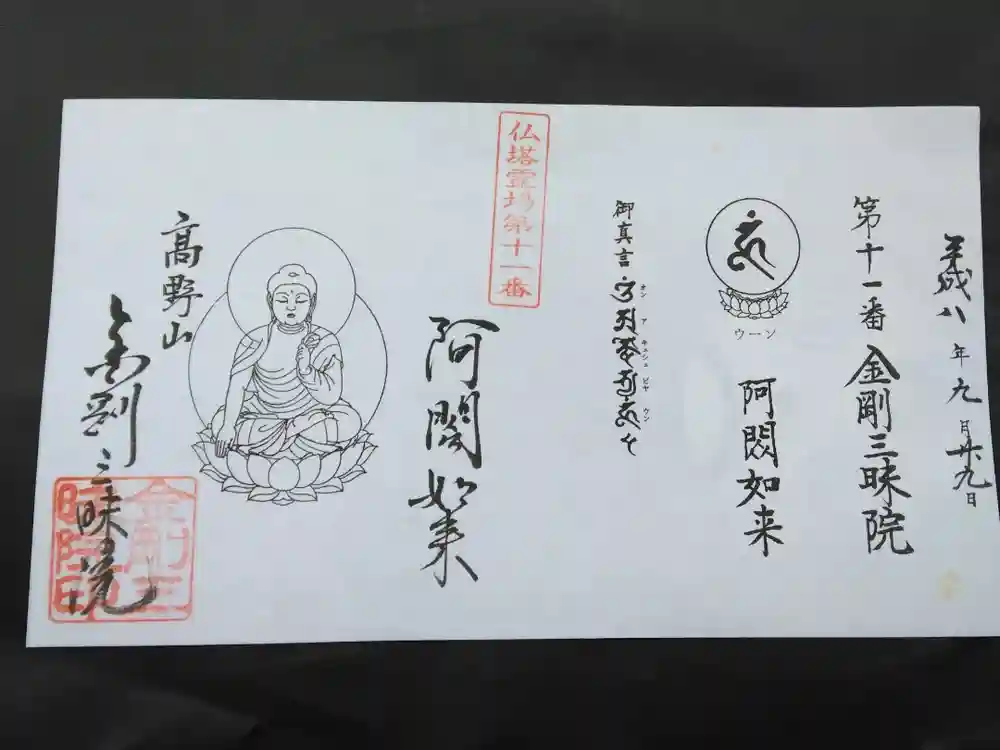 平成八年九月廿九日
第十一番 金剛三昧院
ウーン
阿閦如来
御真言
オン ア キシュ ビヤ ウン
仏塔霊場第十一番
阿閦如来
高野山
金剛三昧院
金剛三昧院印